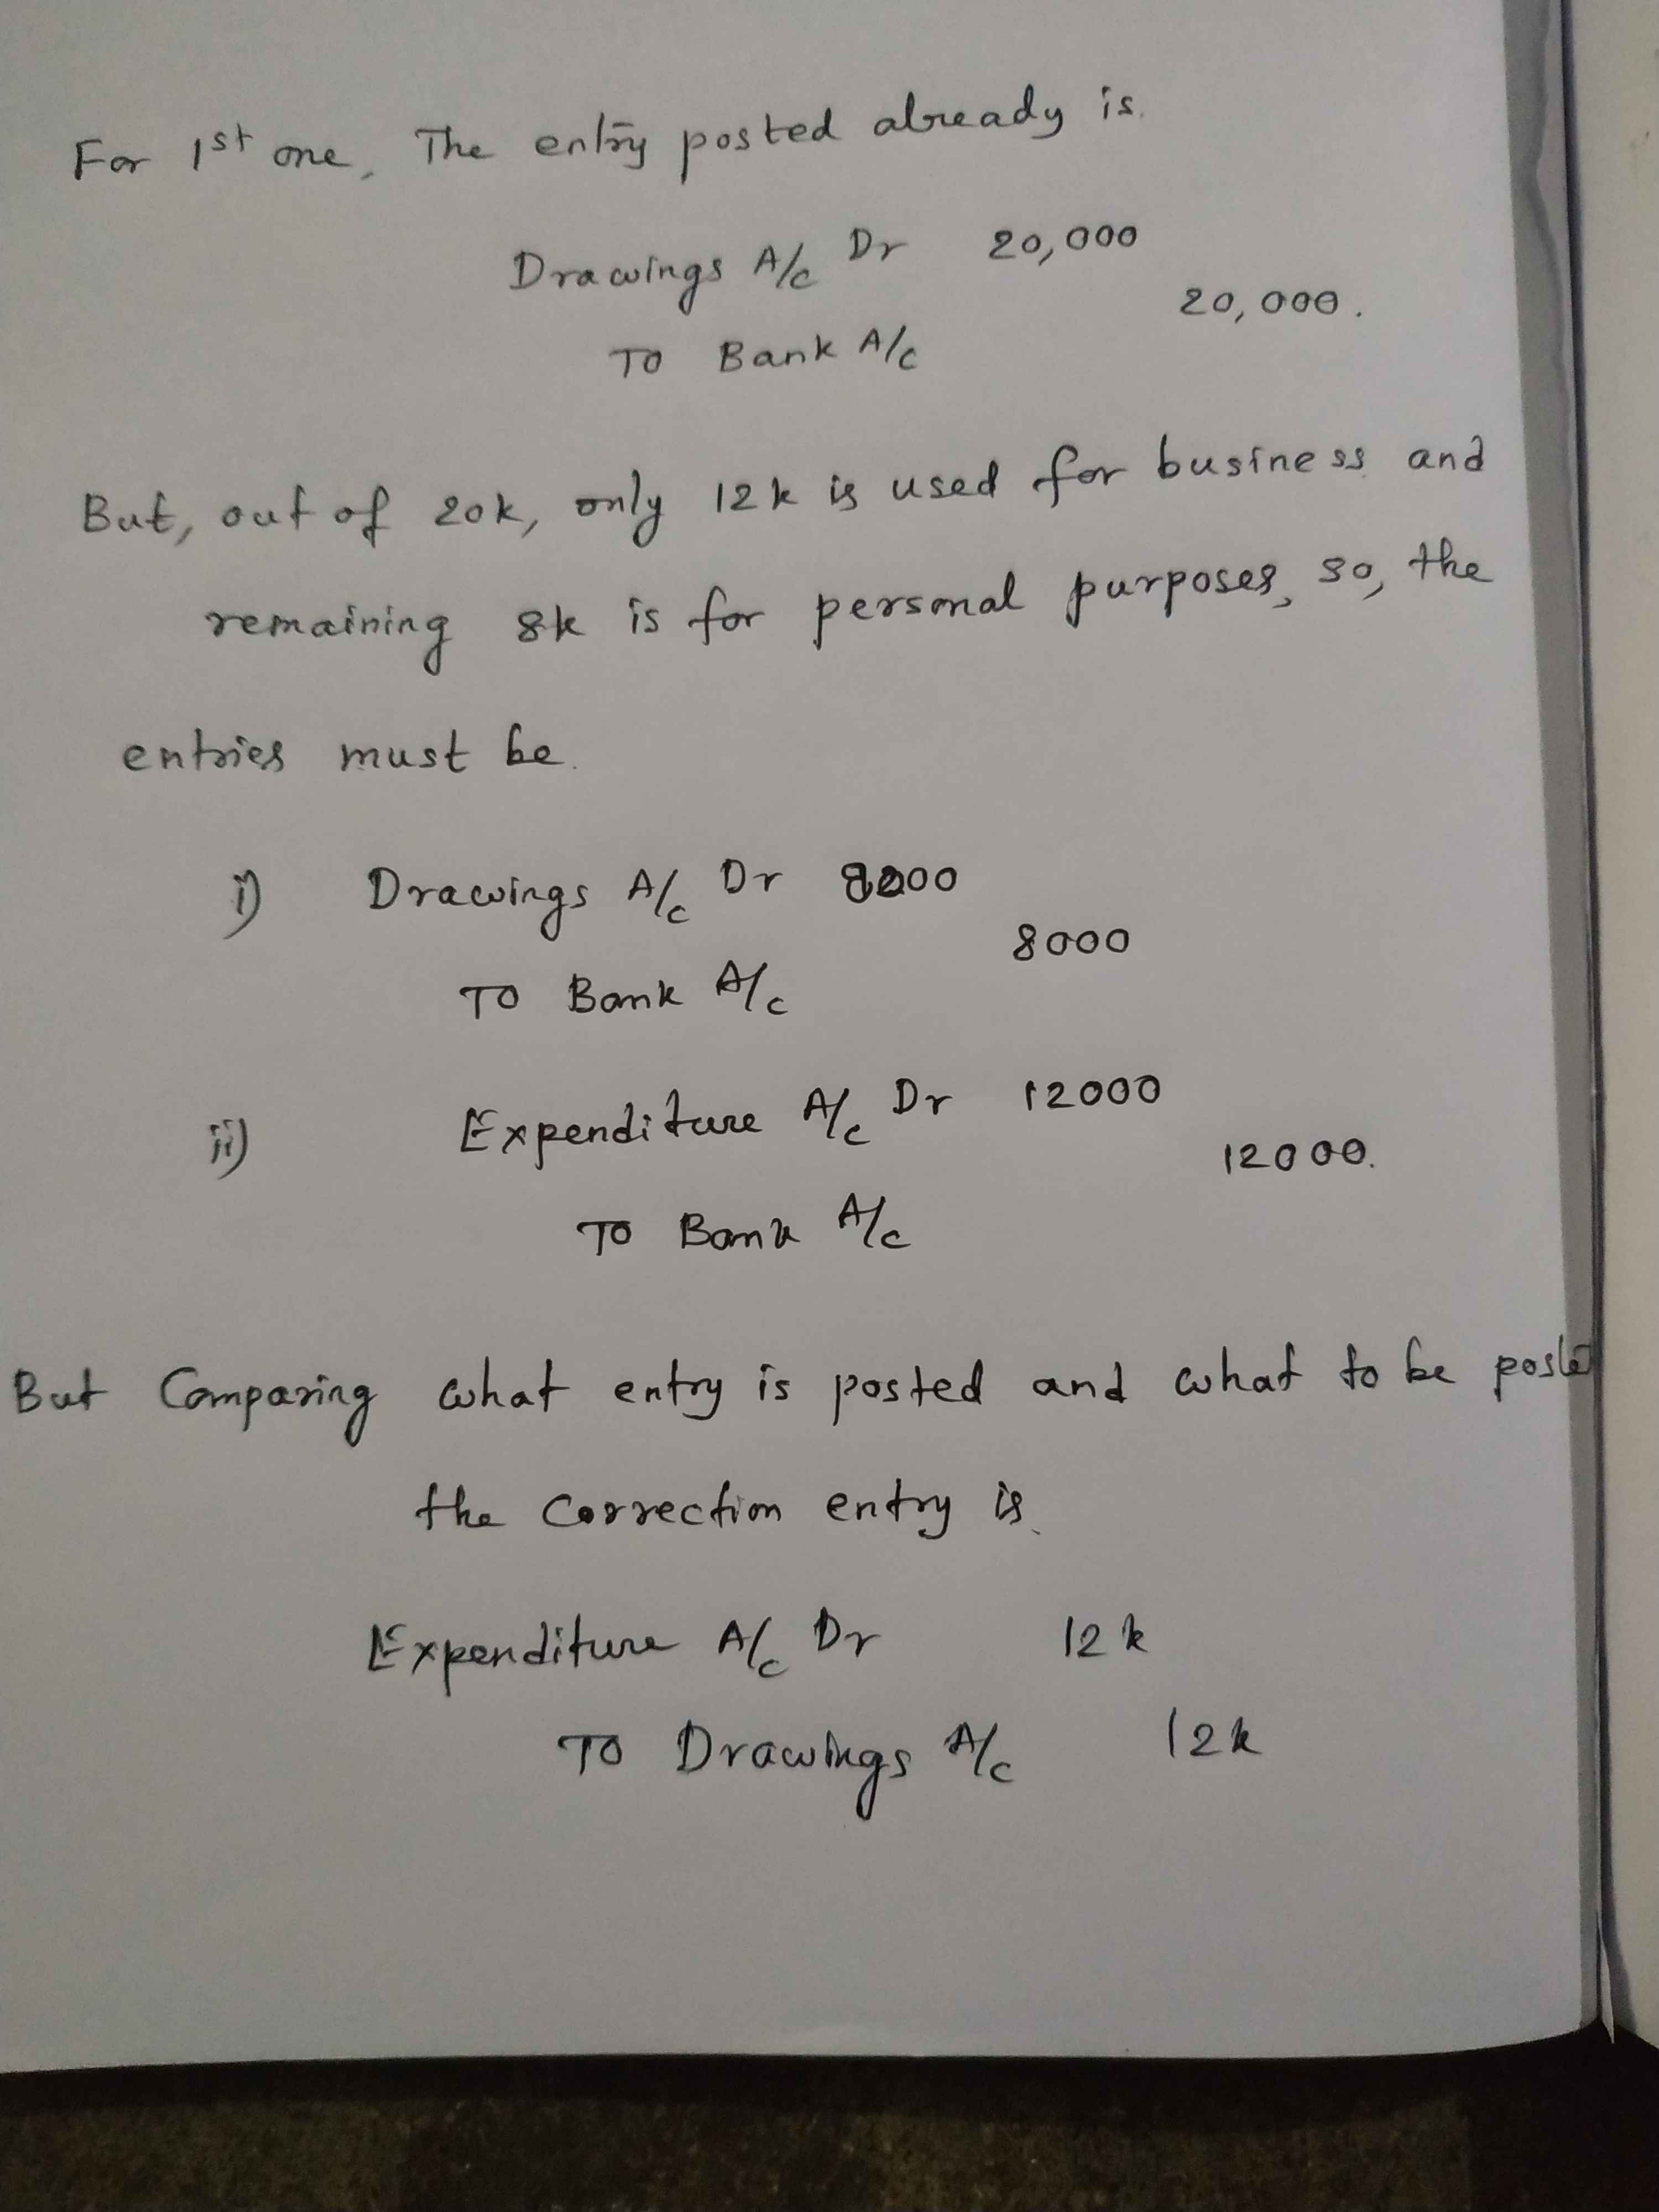 For 1st one, The entry posted already is.
Drawings A/c Dr 20,000
20,000.
TO Bank A/c
But, out of 20k, only 12k is used for business and
remaining 8k is for personal purposes, so, the
entries must be.
i) Drawings A/c Dr 8000
8000
TO Bank A/c
ii) Expenditure A/c Dr 12000
12000.
TO Bank A/c
But Comparing what entry is posted and what to be posted
the Correction entry is.
Expenditure A/c Dr 12k
TO Drawings A/c 12k